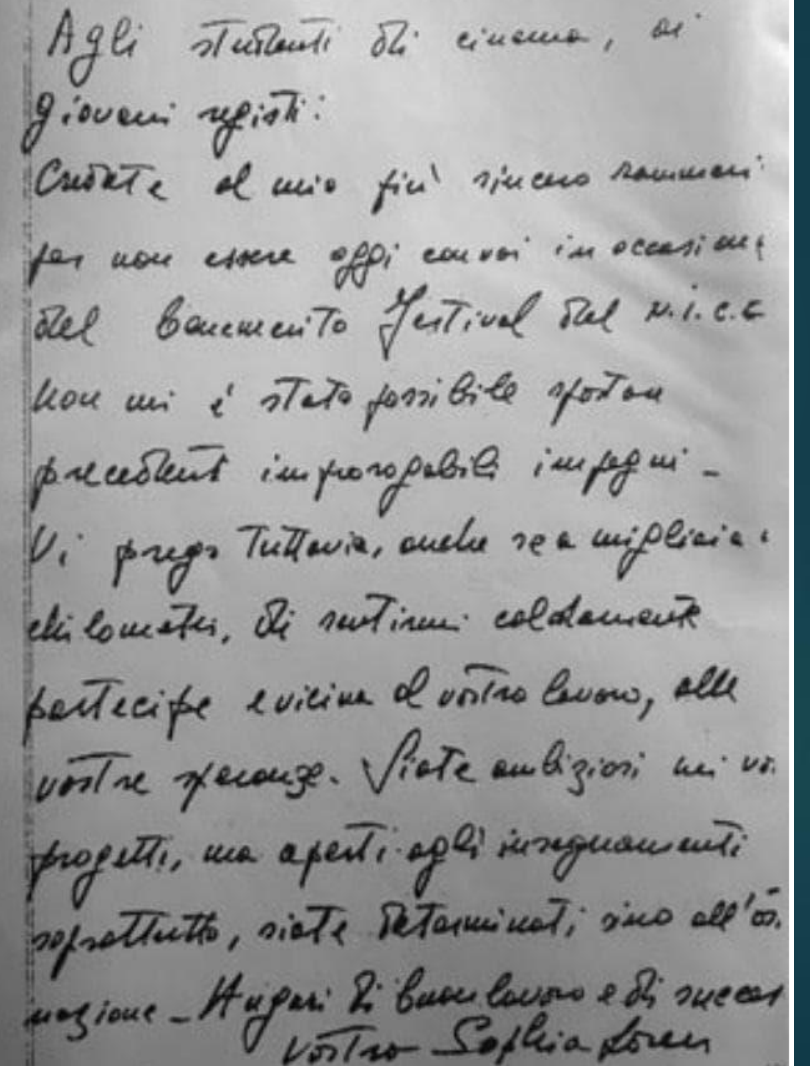 Agli studenti di cinema, ai
giovani registi:
Credete al mio più sincero rammari
per non essere oggi con voi in occasione
del benemerito Festival del N.I.C.E
Non mi è stato possibile spostare
precedenti improrogabili impegni -
Vi prego tuttavia, anche se a migliaia
chilometri, di sentirmi caldamente
partecipe e vicina al vostro lavoro, alle
vostre speranze. Siate ambiziosi nei
progetti, ma aperti agli insegnamenti
soprattutto, siate determinati sino all'os
nazione - Auguri di buon lavoro e di success
Vostra Sophia Loren